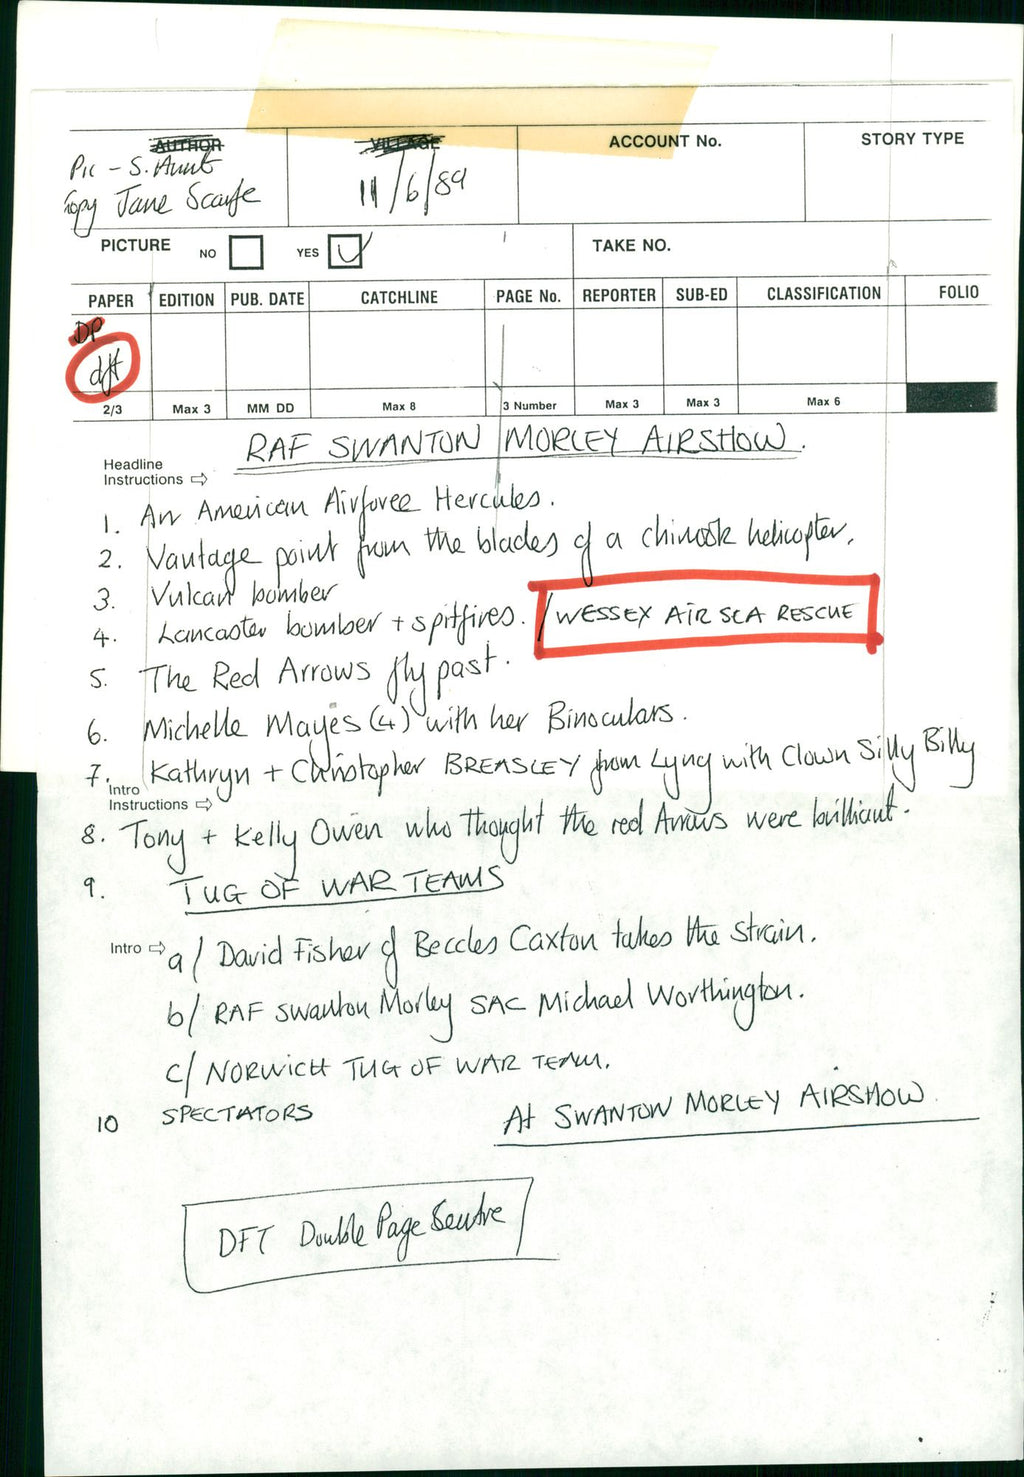 AUTHOR
VILLAGE
ACCOUNT No.
STORY TYPE
Pic - S. Hunt
Copy Jane Scarfe
11/6/89
PICTURE NO YES ✓
TAKE NO.
PAPER EDITION PUB. DATE CATCHLINE PAGE No. REPORTER SUB-ED CLASSIFICATION FOLIO
DP
dft
2/3 Max 3 MM DD Max 8 3 Number Max 3 Max 3 Max 6
RAF SWANTON MORLEY AIRSHOW.
Headline
Instructions ⇨
1. An American Airforce Hercules.
2. Vantage point from the blades of a chinook helicopter.
3. Vulcan bomber
4. Lancaster bomber + spitfires. / WESSEX AIR SEA RESCUE
5. The Red Arrows fly past.
6. Michelle Mayes (4) with her Binoculars.
7. Kathryn + Christopher BREASLEY from Lyng with Clown Silly Billy
Intro
Instructions ⇨
8. Tony + Kelly Owen who thought the red Arrows were brilliant.
9. TUG OF WAR TEAMS
Intro ⇨
a/ David Fisher of Beccles Caxton takes the strain.
b/ RAF Swanton Morley SAC Michael Worthington.
c/ NORWICH TUG OF WAR TEAM.
10 SPECTATORS
At SWANTON MORLEY AIRSHOW.
DFT Double Page Centre